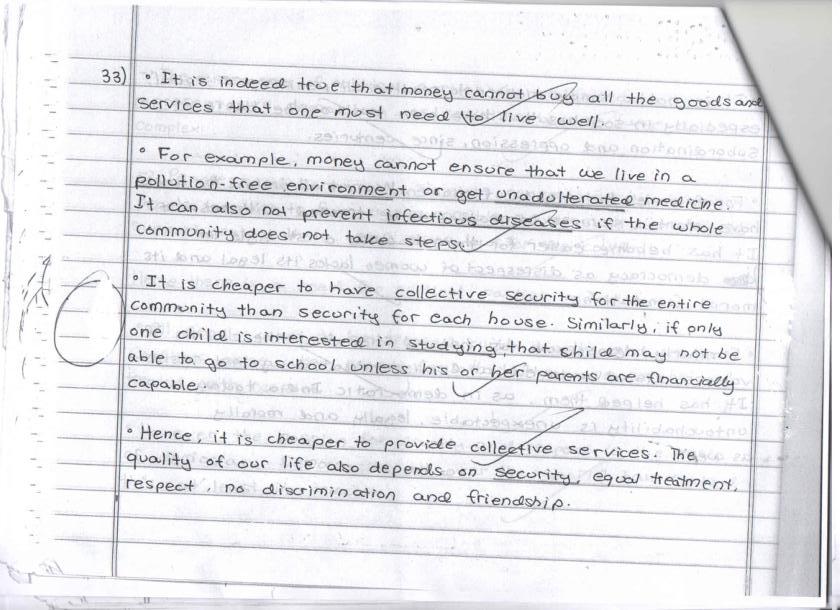 33) • It is indeed true that money cannot buy all the goods and
services that one must need to live well.
• For example, money cannot ensure that we live in a
pollution-free environment or get unadulterated medicine.
It can also not prevent infectious diseases if the whole
community does not take steps.
• It is cheaper to have collective security for the entire
community than security for each house. Similarly, if only
one child is interested in studying, that child may not be
able to go to school unless his or her parents are financially
capable.
• Hence, it is cheaper to provide collective services. The
quality of our life also depends on security, equal treatment,
respect, no discrimination and friendship.